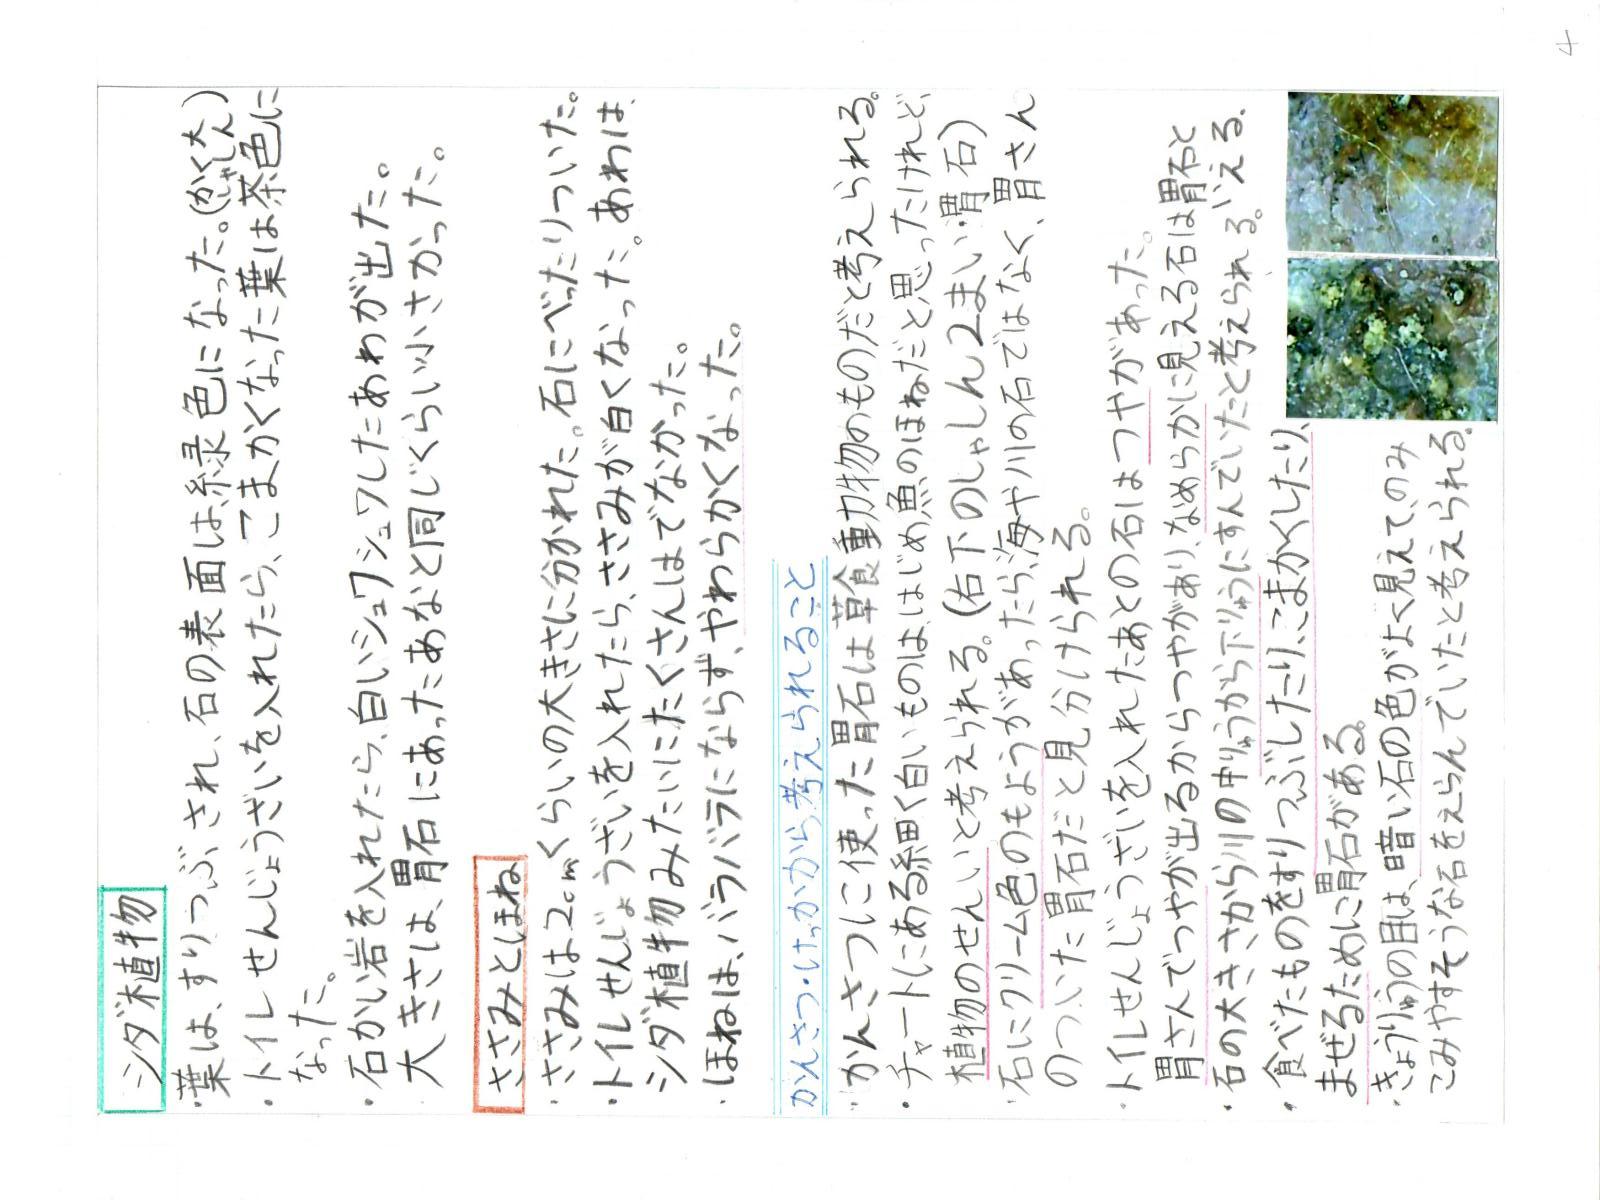 4
シダ植物
・葉は、すりつぶされ、石の表面は緑色になった。(かく大しゃしん)
・トイレせんじょうざいを入れたら、こまかくなった葉は茶色に
なった。
・石かい岩を入れたら、白いシュワシュワしたあわが出た。
大きさは、胃石にあったあなと同じくらい小さかった。
ささみとほね
・ささみは2cmくらいの大きさに分かれた。石にべったりついた。
・トイレせんじょうざいを入れたら、ささみが白くなった。あわは、
シダ植物みたいにたくさんはでなかった。
・ほねは、バラバラにならず、やわらかくなった。
かんさつ・けっかから考えられること
・かんさつに使った胃石は草食動物のものだと考えられる。
・チャートにある細く白いものは、はじめ魚のほねだと思ったけれど、
植物のせんいと考えられる。(右下のしゃしん2まい・胃石)
・石にクリーム色のもようがあったら、海や川の石ではなく、胃さん
のついた胃石だと見分けられる。
・トイレせんじょうざいを入れたあとの石はつやがあった。
胃さんでつやが出るからつやがあり、なめらかに見える石は胃石と
いえる。
・石の大きさから川の中りゅうから下りゅうにすんでいたと考えられる。
・食べたものをすりつぶしたり、こまかくしたり、
まぜるために胃石がある。
・きょうりゅうの目は、暗い石の色がよく見えて、のみ
こみやすそうな石をえらんでいたと考えられる。